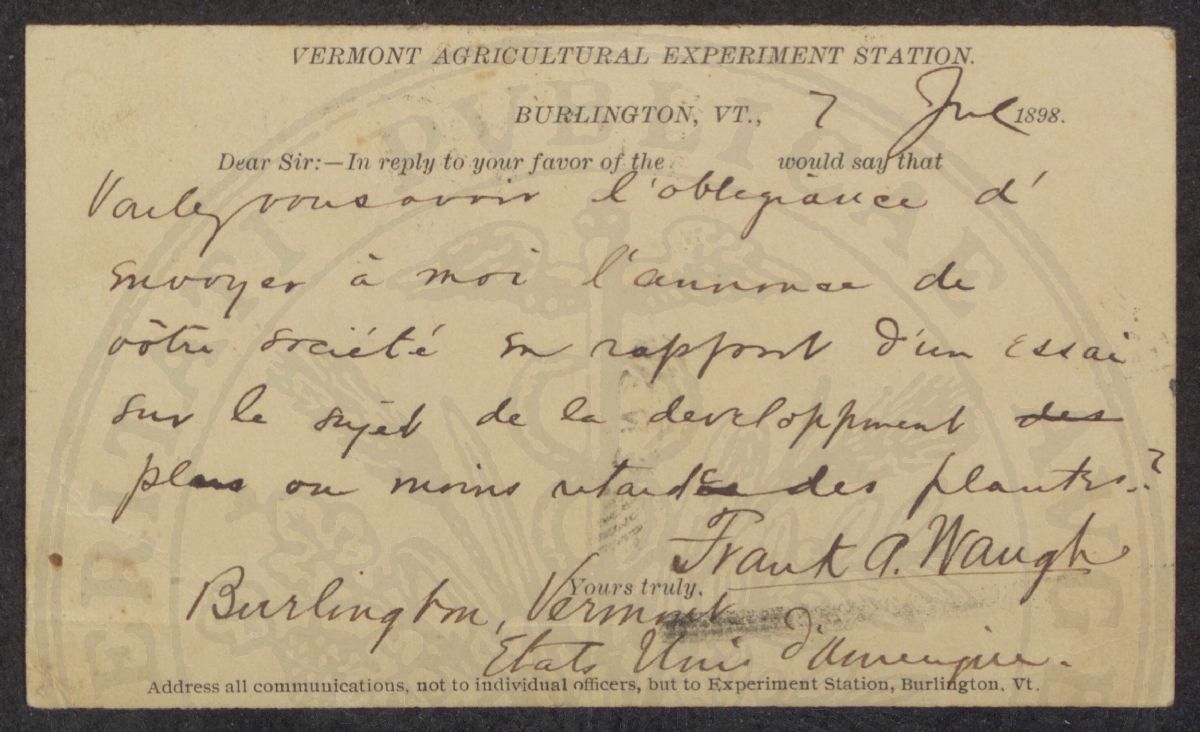 VERMONT AGRICULTURAL EXPERIMENT STATION.
BURLINGTON, VT., 7 Jul 1898.
Dear Sir:—In reply to your favor of the would say that
Voulez vous avoir l'oblegiance d'
envoyer à moi l'annonce de
vôtre société en rapport d'un essai
sur le sujet de la developpment des
plus ou moins retardée des plantes.?
Frank A. Waugh
Yours truly,
Burlington, Vermont
Etats Unis d'Amerique.
Address all communications, not to individual officers, but to Experiment Station, Burlington, Vt.